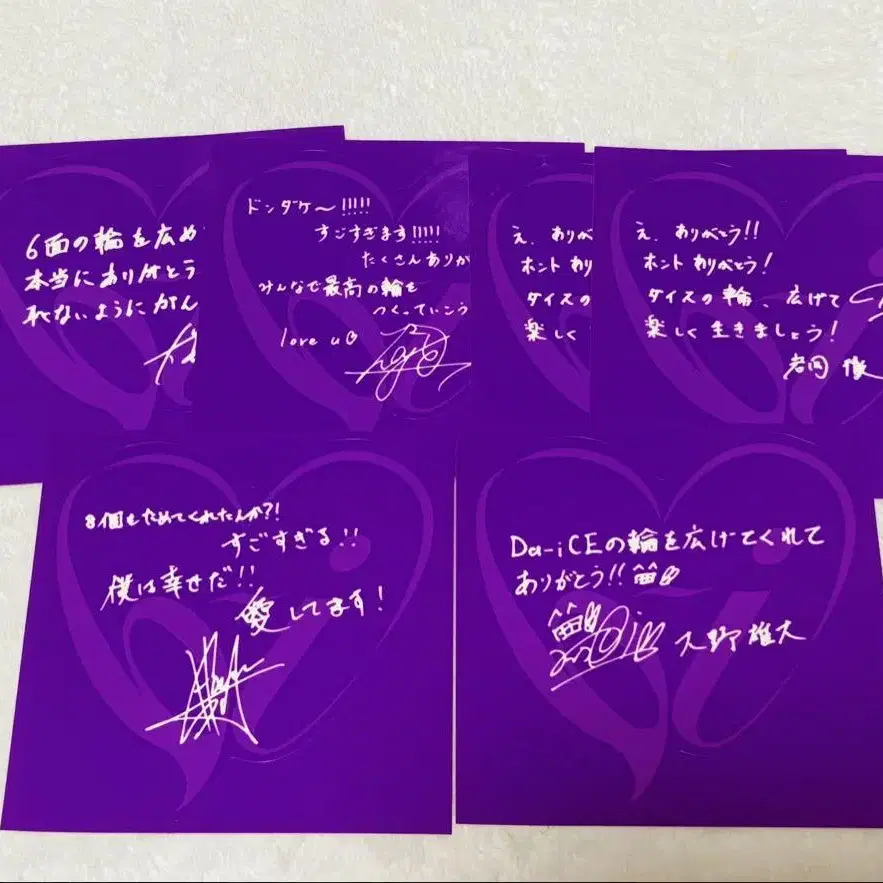 6面の輪を広め
本当にありがとう
れないようにがん
ドンダケ〜!!!!!
すごすぎます!!!!!
たくさんありが
みんなで最高の輪を
つくっていこう
love u
え、ありが
ホント あり
ダイスの
楽しく
え、ありがとう!!
ホント ありがとう!
ダイスの輪、広げて
楽しく生きましょう!
岩岡 徹
8個もためてくれたんか?!
すごすぎる!!
僕は幸せだ!!
愛してます!
Da-iCEの輪を広げてくれて
ありがとう!!
大野雄大